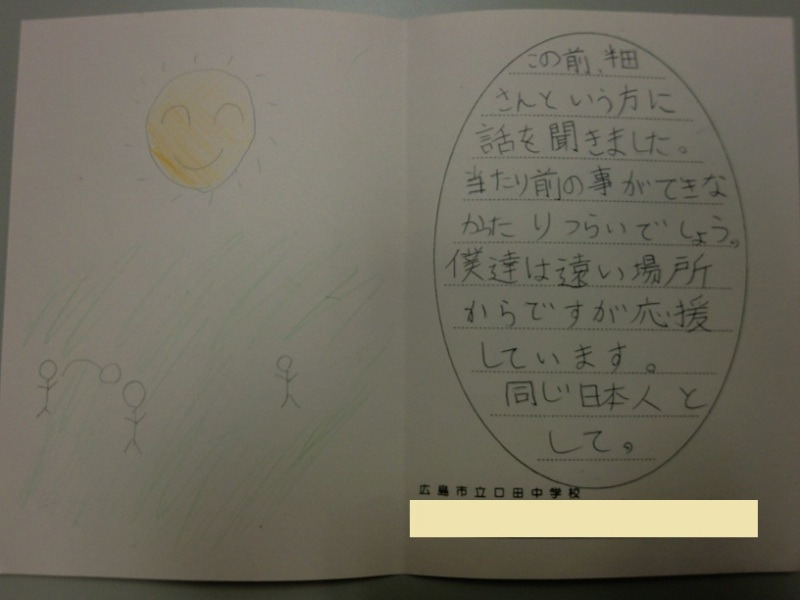 この前、半田
さんという方に
話を聞きました。
当たり前の事ができな
かったりつらいでしょう。
僕達は遠い場所
からですが応援
しています。
同じ日本人と
して。
広島市立口田中学校